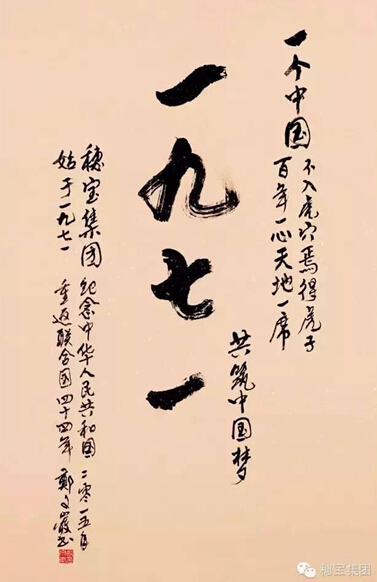 一个中国
不入虎穴焉得虎子
百年一心天地一席
共筑中国梦
一九七一
穗宝集团 纪念中华人民共和国
始于一九七一 重返联合国四十四年
穗宝集团